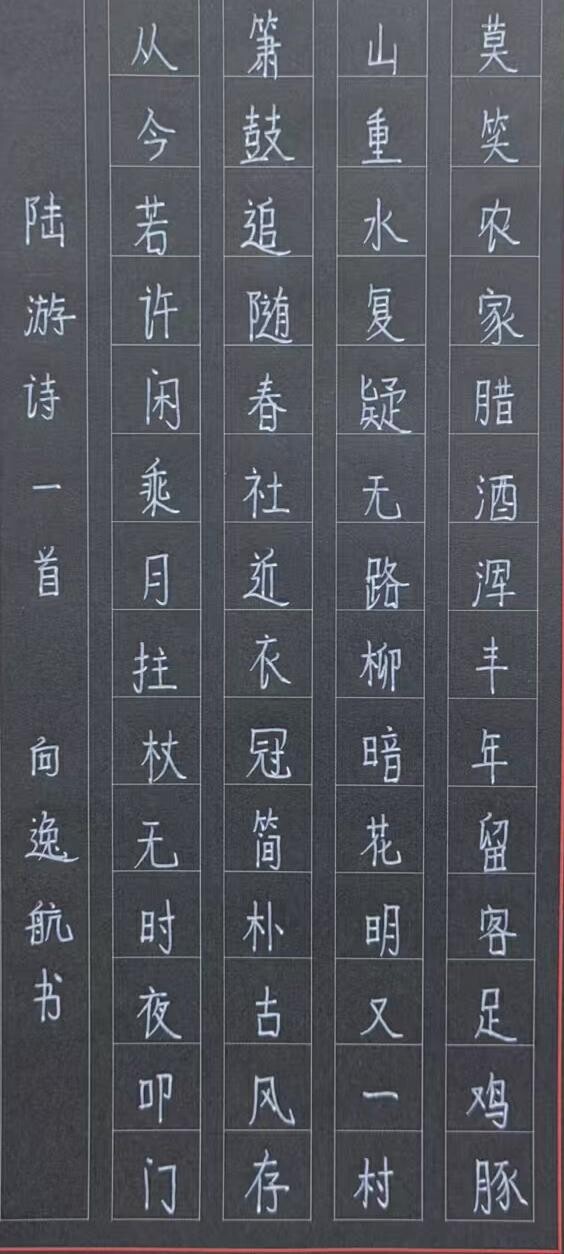 莫笑农家腊酒浑丰年留客足鸡豚
山重水复疑无路柳暗花明又一村
箫鼓追随春社近衣冠简朴古风存
从今若许闲乘月拄杖无时夜叩门
陆游诗一首 向逸航书